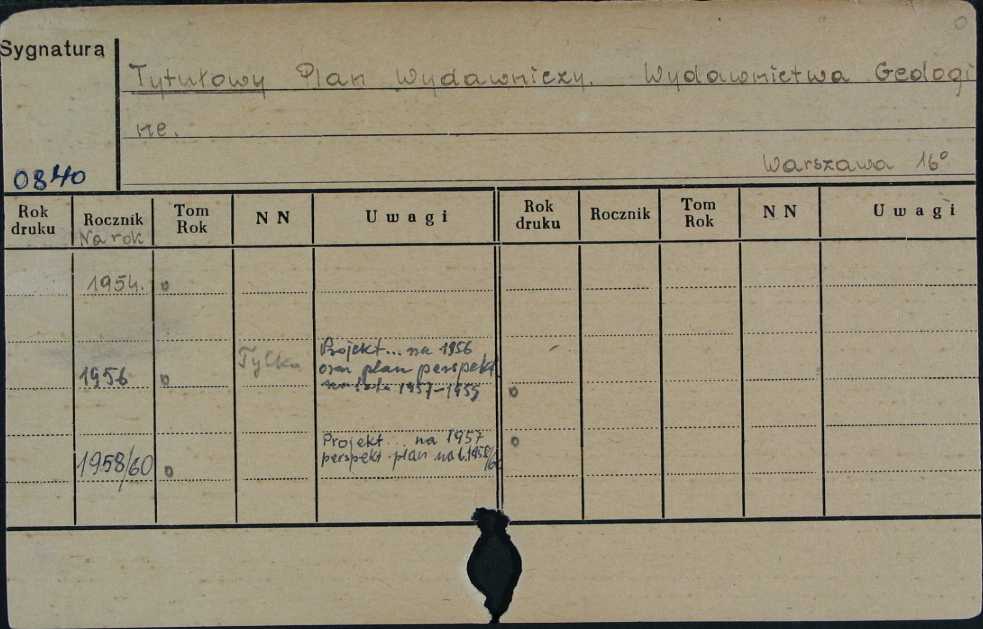 Sygnatura
Tytułowy Plan Wydawniczy. Wydawnictwa Geologi
ne.
Warszawa 16°
0840
Rok druku Rocznik Tom Rok NN Uwagi Rok druku Rocznik Tom Rok NN Uwagi
Na rok
1954. o
1956 o Tylko Projekt... na 1956
oraz plan perspekt.
na lata 1957-1959 o
1958/60 o Projekt... na 1957 o
perspekt. plan na l. 1958/60